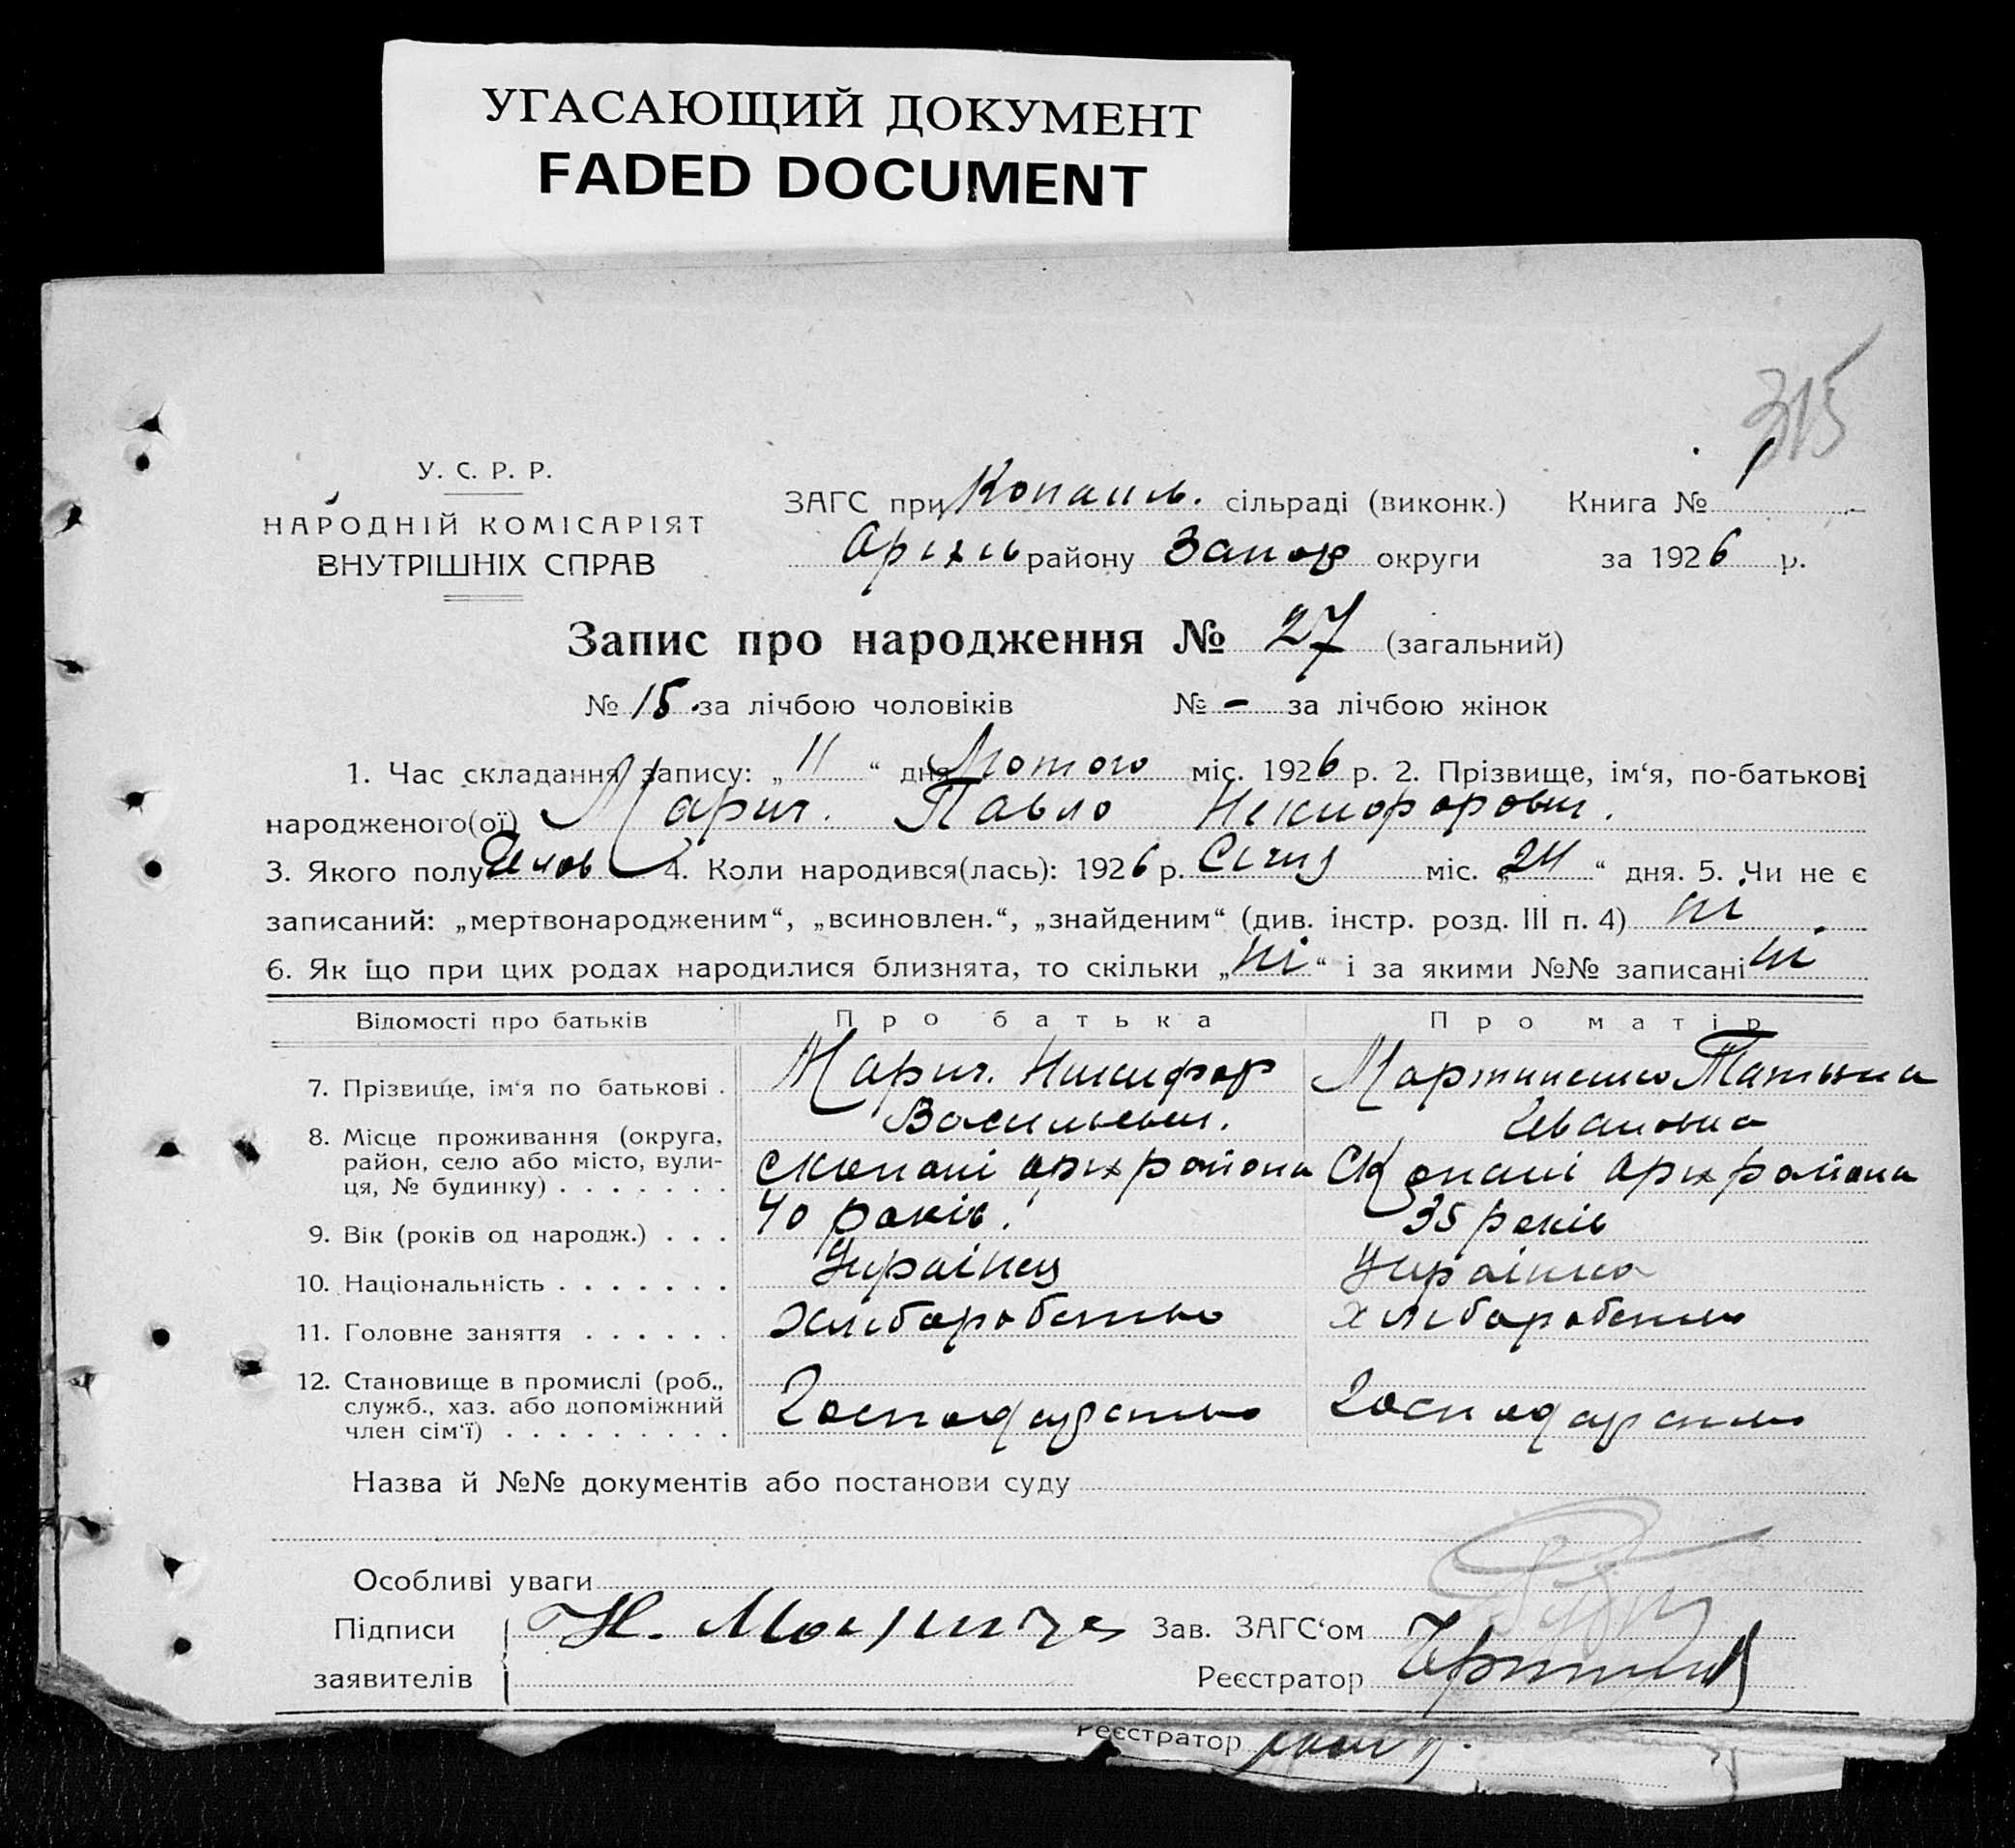 УГАСАЮЩИЙ ДОКУМЕНТ
FADED DOCUMENT
315
У. С. Р. Р.
НАРОДНІЙ КОМІСАРІЯТ
ВНУТРІШНІХ СПРАВ
ЗАГС при Копань. сільраді (виконк.) Книга № 1
Оріхів району Запор округи за 1926 р.
Запис про народження № 27 (загальний)
№ 15. за лічбою чоловіків № - за лічбою жінок
1. Час складання запису: „11“ дня Лютого міс. 1926 р. 2. Прізвище, ім‘я, по-батькові
народженого(ої) Марич. Павло Никифорович.
3. Якого полу Чолов 4. Коли народився(лась): 1926 р. Січня міс. „24“ дня. 5. Чи не є
записаний: „мертвонародженим“, „всиновлен.“, „знайденим“ (див. інстр. розд. III п. 4) ні
6. Як що при цих родах народилися близнята, то скільки „ні“ і за якими №№ записані ні
Відомості про батьків Про батька Про матір
7. Прізвище, ім‘я по батькові . Марич. Никифор Васильевич. Мартиненко Татьяна Ивановна
8. Місце проживання (округа,
район, село або місто, вули-
ця, № будинку) . . . . . . . с Копані Оріх района с Копані Оріх района
9. Вік (років од народж.) . . . 40 років. 35 років
10. Національність . . . . . . . Українец Українка
11. Головне заняття . . . . . . Хлиборобство хлиборобство
12. Становище в промислі (роб.,
служб., хаз. або допоміжний
член сім‘ї) . . . . . . . . . Господарство Господарство
Назва й №№ документів або постанови суду
Особливі уваги
Підписи
заявителів
Н. Марича
Зав. ЗАГС‘ом
Реєстратор
Реєстратор